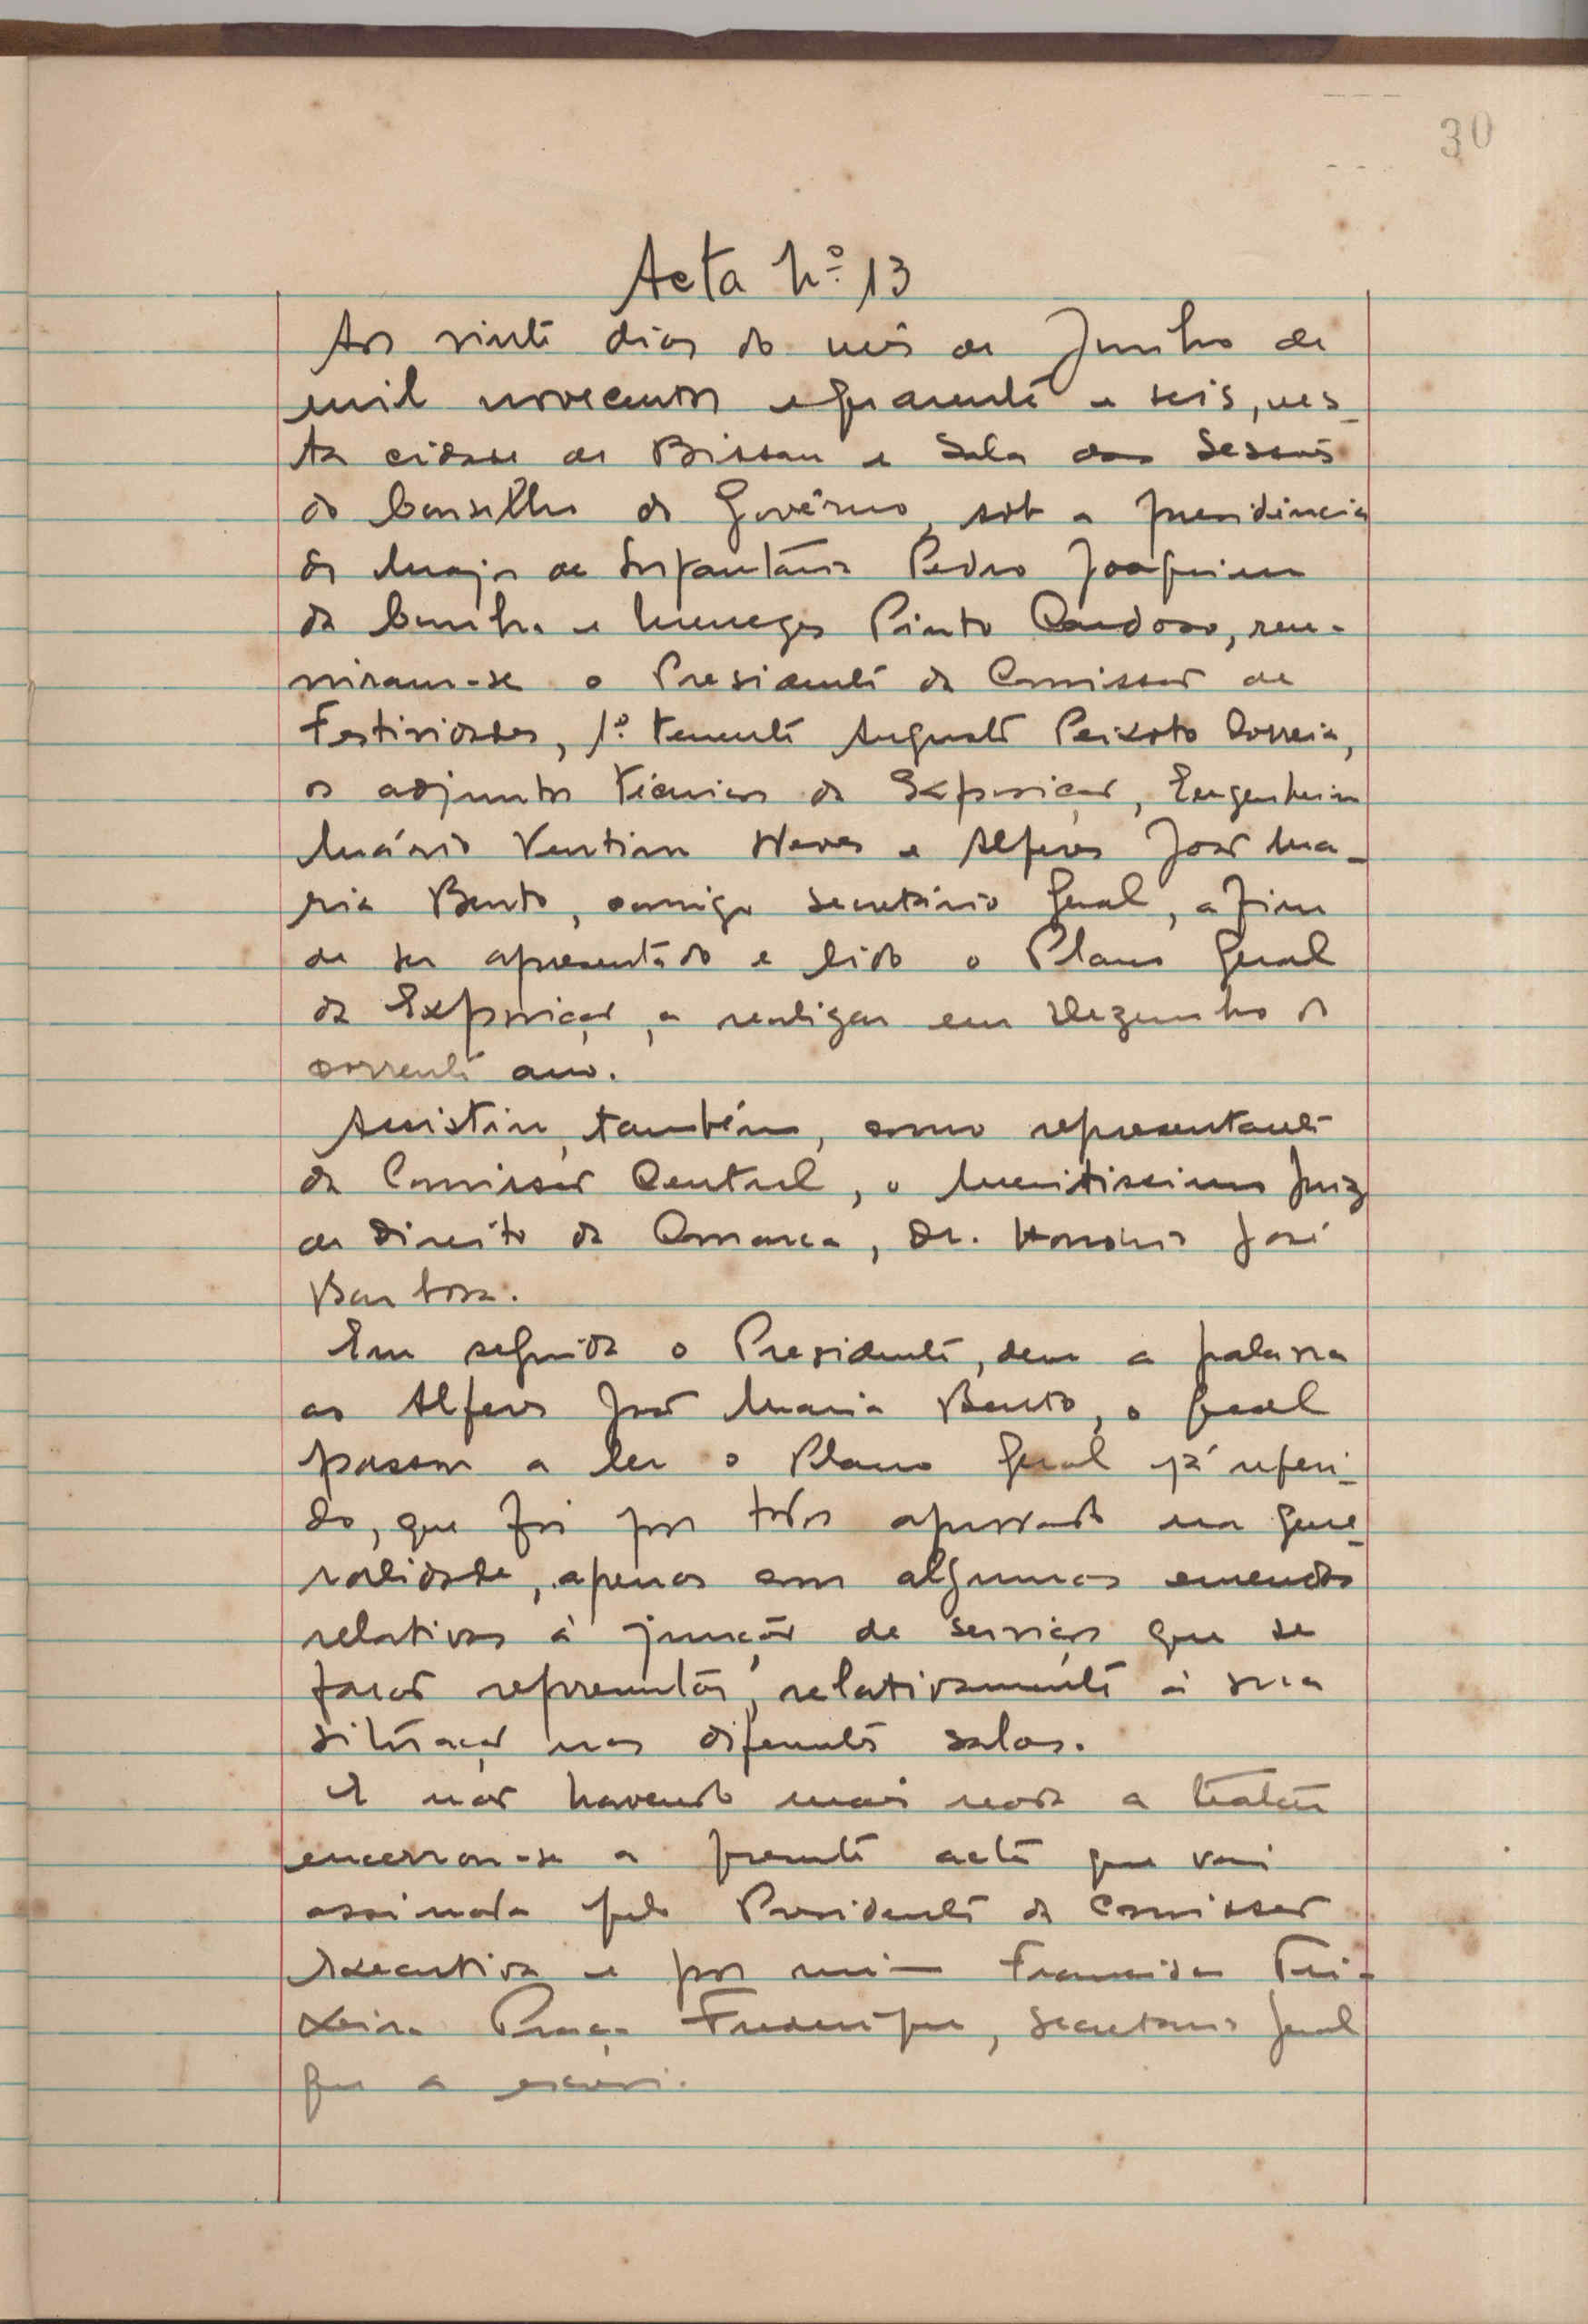 30
Acta Nº 13
Aos vinte dias do mês de Junho de
mil novecentos e quarenta e seis, nes-
ta cidade de Bissau e Sala das Sessões
do Conselho do Govêrno, sob a presidência
do Major de Infantaria Pedro Joaquim
da Cunha e Menezes Pinto Cardoso, reu-
niram-se o Presidente da Comissão de
Festividades, 1º Tenente Augusto Peixoto Correia,
os adjuntos Técnicos da Exposição, Engenheiro
Mário Ventim Neves e Alferes José Ma-
ria Bento, comigo secretário Geral, a fim
de ser apresentado e lido o Plano Geral
da Exposição, a realizar em Dezembro do
corrente ano.
Assistiu, também, como representante
da Comissão Central, o Meritissimo Juiz
de Direito da Comarca, Dr. Honório José
Barbosa.
Em seguida o Presidente, deu a palavra
ao Alferes José Maria Bento, o qual
passou a ler o Plano Geral já referi-
do, que foi por todos aprovado na gene-
ralidade, apenas com algumas emendas
relativas à junção de serviços que se
façam representar, relativamente à sua
situação nas diferentes salas.
E não havendo mais nada a tratar
encerrou-se a presente acta que vai
assinada pelo Presidente da Comissão
Executiva e por mim Tei-
xeira Frederique, secretario geral
que a escrevi.